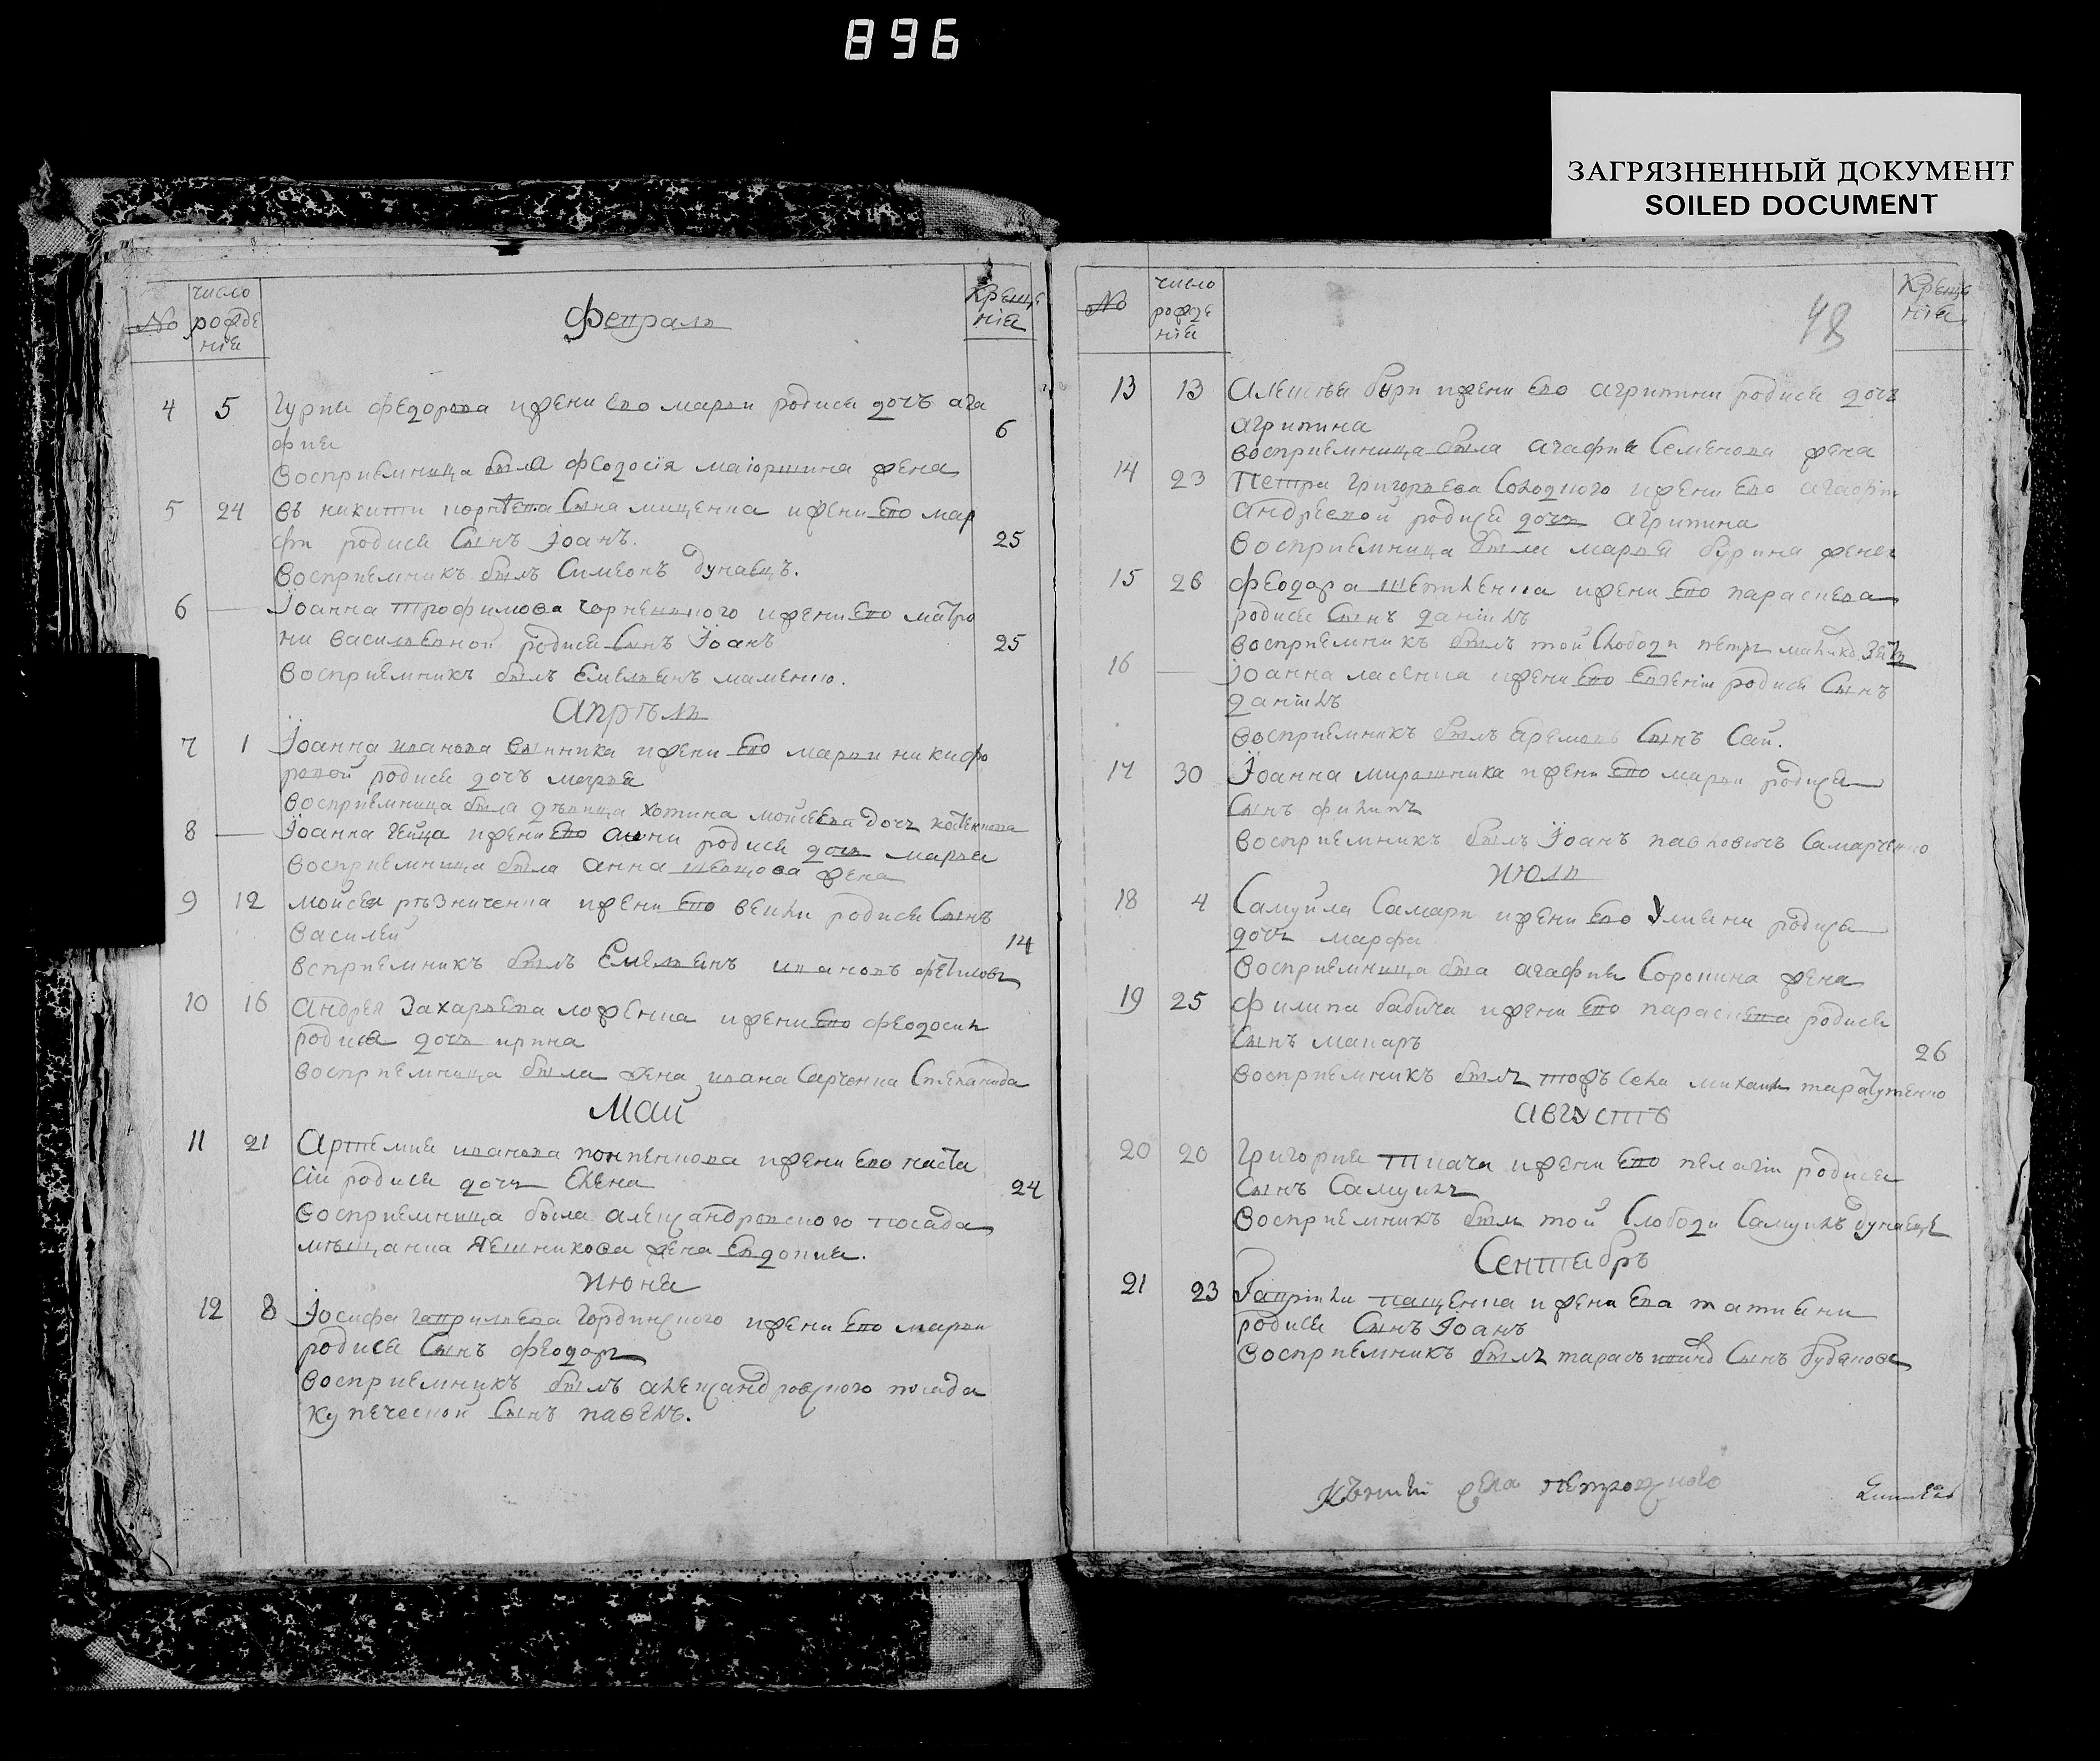 896
ЗАГРЯЗНЕННЫЙ ДОКУМЕНТ
SOILED DOCUMENT
№ число рожде нїя Февраль Креще нїя
4 5 Гурия Федорова и жени его марви родися дочъ ага
фия 6
восприемница была Феодосїя маіоршина жена
5 24 въ никити сына мищенка и жени его мар
фи родися Сынъ Іоанъ. 25
восприемникъ былъ Симеонъ дунаецъ.
6 — Іоанна трофимова и жени его матро
ни васильевной родися Сынъ Іоанъ 25
восприемникъ былъ Емельянъ маменко.
Апрѣль
7 1 Іоанна иванова винника и жени его марви никифо
ровой родися дочъ марья
восприемница была дѣвица хотина мойсеева дочъ
8 — Іоанна и жени его анни родися дочъ марья
восприемница была анна шевцова жена
9 12 мойсея рѣзниченка и жени его родися Сынъ
василей 14
всприемникъ былъ Емельянъ ивановъ
10 16 андрея Захарьева и жени его феодосии
родися дочъ ирина
восприемница была жена ивана Сарченка Степанида
Май
11 21 Артемия иванова и жени его наста
сіи родися дочъ елена 24
восприемница была александровского посада
мѣщанка жена Евдокия.
Июня
12 8 Іосифа гаврильева Гординского и жени его марви
родися Сынъ феодоръ
восприемникъ былъ александровского посада
купеческой Сынъ павелъ.
№ число рожде нїя 48 Креще нїя
13 13 алексѣя бури и жени его агрипини родися дочъ
агрипина
восприемница была агафия Семенова жена
14 23 Петра григорьева Солодкого и жени его агафіи
андреевой родися дочъ агрипина
восприемница была марья бурина жена
15 26 феодора и жени его параскева
родися Сынъ данїилъ
восприемникъ былъ той Слободи петръ
16 — Іоанна ласенка и жени его евгенїи родися Сынъ
данїилъ
восприемникъ былъ Сынъ Сай.
17 30 Іоанна мирошника и жени его марви родися
Сынъ филипъ
восприемникъ былъ Іоанъ павловичъ Самарченко
Июль
18 4 Самуйла Самари и жени его улияни родися
дочъ марфа
восприемница быа агафия Сорокина жена
19 25 Филипа бабича и жени его параскева родися
Сынъ макаръ 26
восприемникъ былъ тожъ села михаилъ таратутенко
Августъ
20 20 Григория ткача и жени его пелагїи родися
Сынъ Самуилъ
восприемникъ былъ той Слободи Самуилъ дунаеце
Сентябръ
21 23 Гаврїила пащенка и жена ева татияни
родися Сынъ Іоанъ
восприемникъ былъ тарасъ Сынъ
села петровского